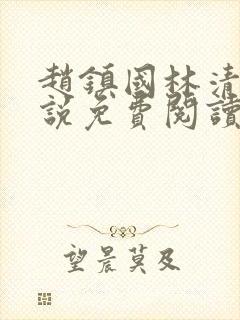 趙鎮國林清
說免費閱讀
望晨莫及